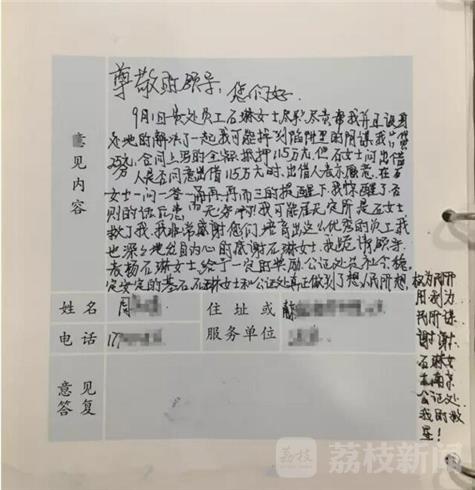 尊敬的领导：您们好
9月1日贵处员工石琳女士尽职尽责帮我并且设身
处地的解决了一起我可能掉到陷阱里的阴谋，我只贷
25万，合同上写的全额抵押115万元，但石女士问出借
人是否同意出借115万元时，出借人表示愿意，在石
女士一问一答一再再而三的提醒下，我惊醒了，否
则的话后患无穷，而我可能居无定所，是石女士
救了我，我非常感谢您们培育出这么优秀的员工，我
也深深地发自内心的感谢石琳女士，我恳请领导
表扬石琳女士给予一定的奖励，公证处是社会稳
定安定的基石，石琳女士和公证处真正做到了想人民所想
权为民所
用，利为
民所谋
谢谢
石琳女
士南京
公证处
我的救
星！
意见内容
姓名
周
住址或
服务单位
电话
17
意见
答复
荔枝
荔枝新闻